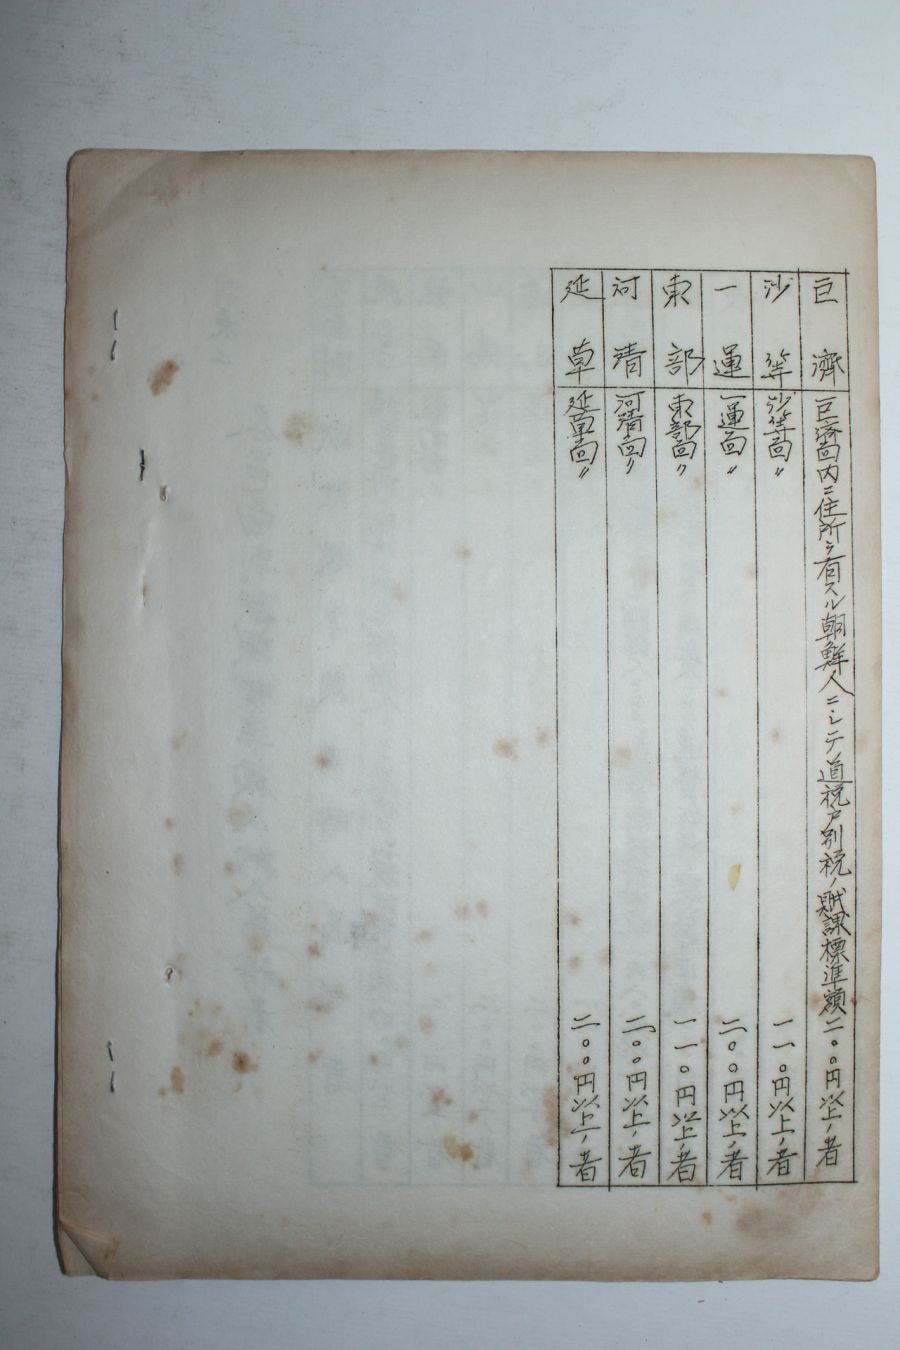 巨濟 巨済面内ニ住所ヲ有スル朝鮮人ニシテ道税戸別税ノ賦課標準額二〇〇円以上ノ者
沙等 沙等面〃 一一〇円以上ノ者
一運 一運面〃 二〇〇円以上ノ者
東部 東部面〃 一一〇円以上ノ者
河清 河清面〃 二〇〇円以上ノ者
延草 延草面〃 二〇〇円以上ノ者